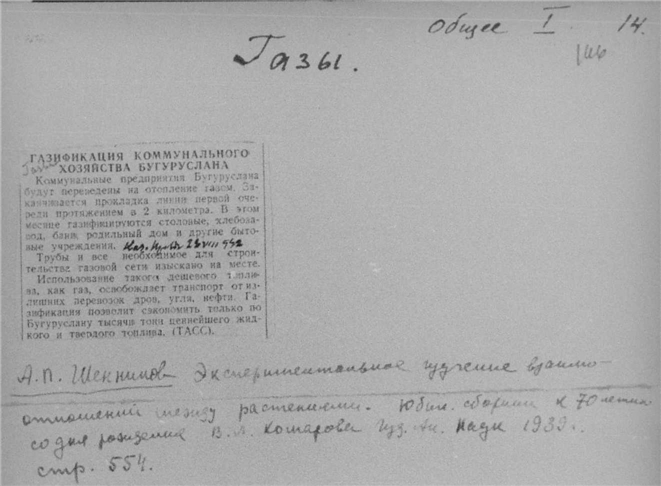 Общее I 14.
Газы.
ГАЗИФИКАЦИЯ КОММУНАЛЬНОГО
ХОЗЯЙСТВА БУГУРУСЛАНА
Коммунальные предприятия Бугуруслана
будут переведены на отопление газом. За-
канчивается прокладка линии первой оче-
реди протяжением в 2 километра. В этом
месяце газифицируются столовые, хлебоза-
вод, баня, родильный дом и другие быто-
вые учреждения.
Трубы и все необходимое для строи-
тельства газовой сети изыскано на месте.
Использование такого дешевого топли-
ва, как газ, освобождает транспорт от из-
лишних перевозок дров, угля, нефти. Га-
зификация позволит сэкономить только по
Бугуруслану тысячи тонн ценнейшего жид-
кого и твердого топлива. (ТАСС).
А.П. Шенников Экспериментальное изучение взаимо-
отношений между растениями. Юбил. сборник к 70летию
со дня рождения В.Л. Комарова Изд. Ак. Наук 1939г.
стр. 554.